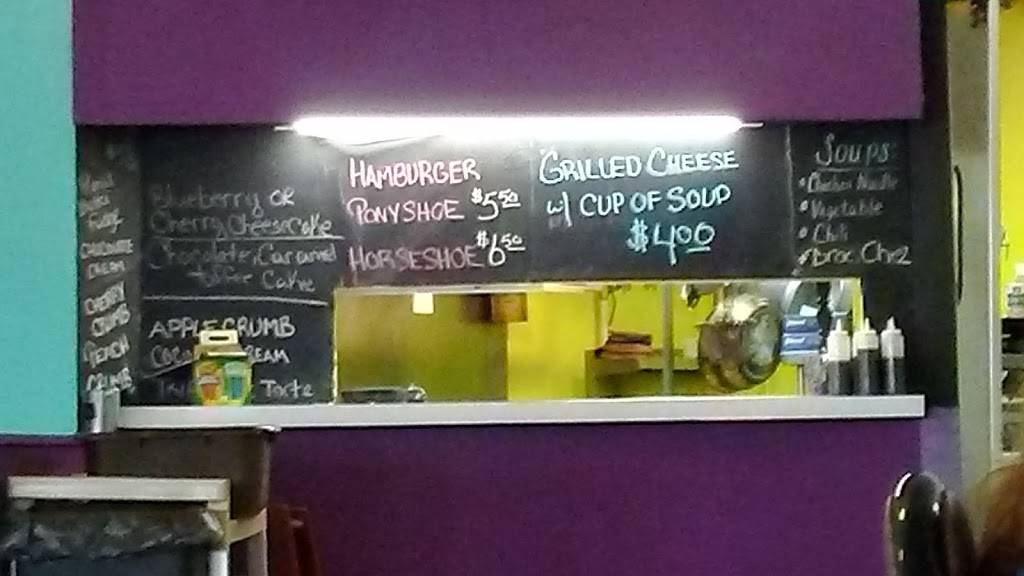 CHOCOLATE
CREAM
CHERRY
CRUMB
PEACH
CRUMB
Blueberry OR
Cherry CheeseCake
Chocolate, Caramel
Toffee Cake
APPLE CRUMB
Torte
HAMBURGER
PONYSHOE $5.50
HORSESHOE $6.50
GRILLED CHEESE
w/ CUP OF SOUP
$4.00
Soups
• Chicken Noodle
• Vegetable
• Chili
• Broc. Chez